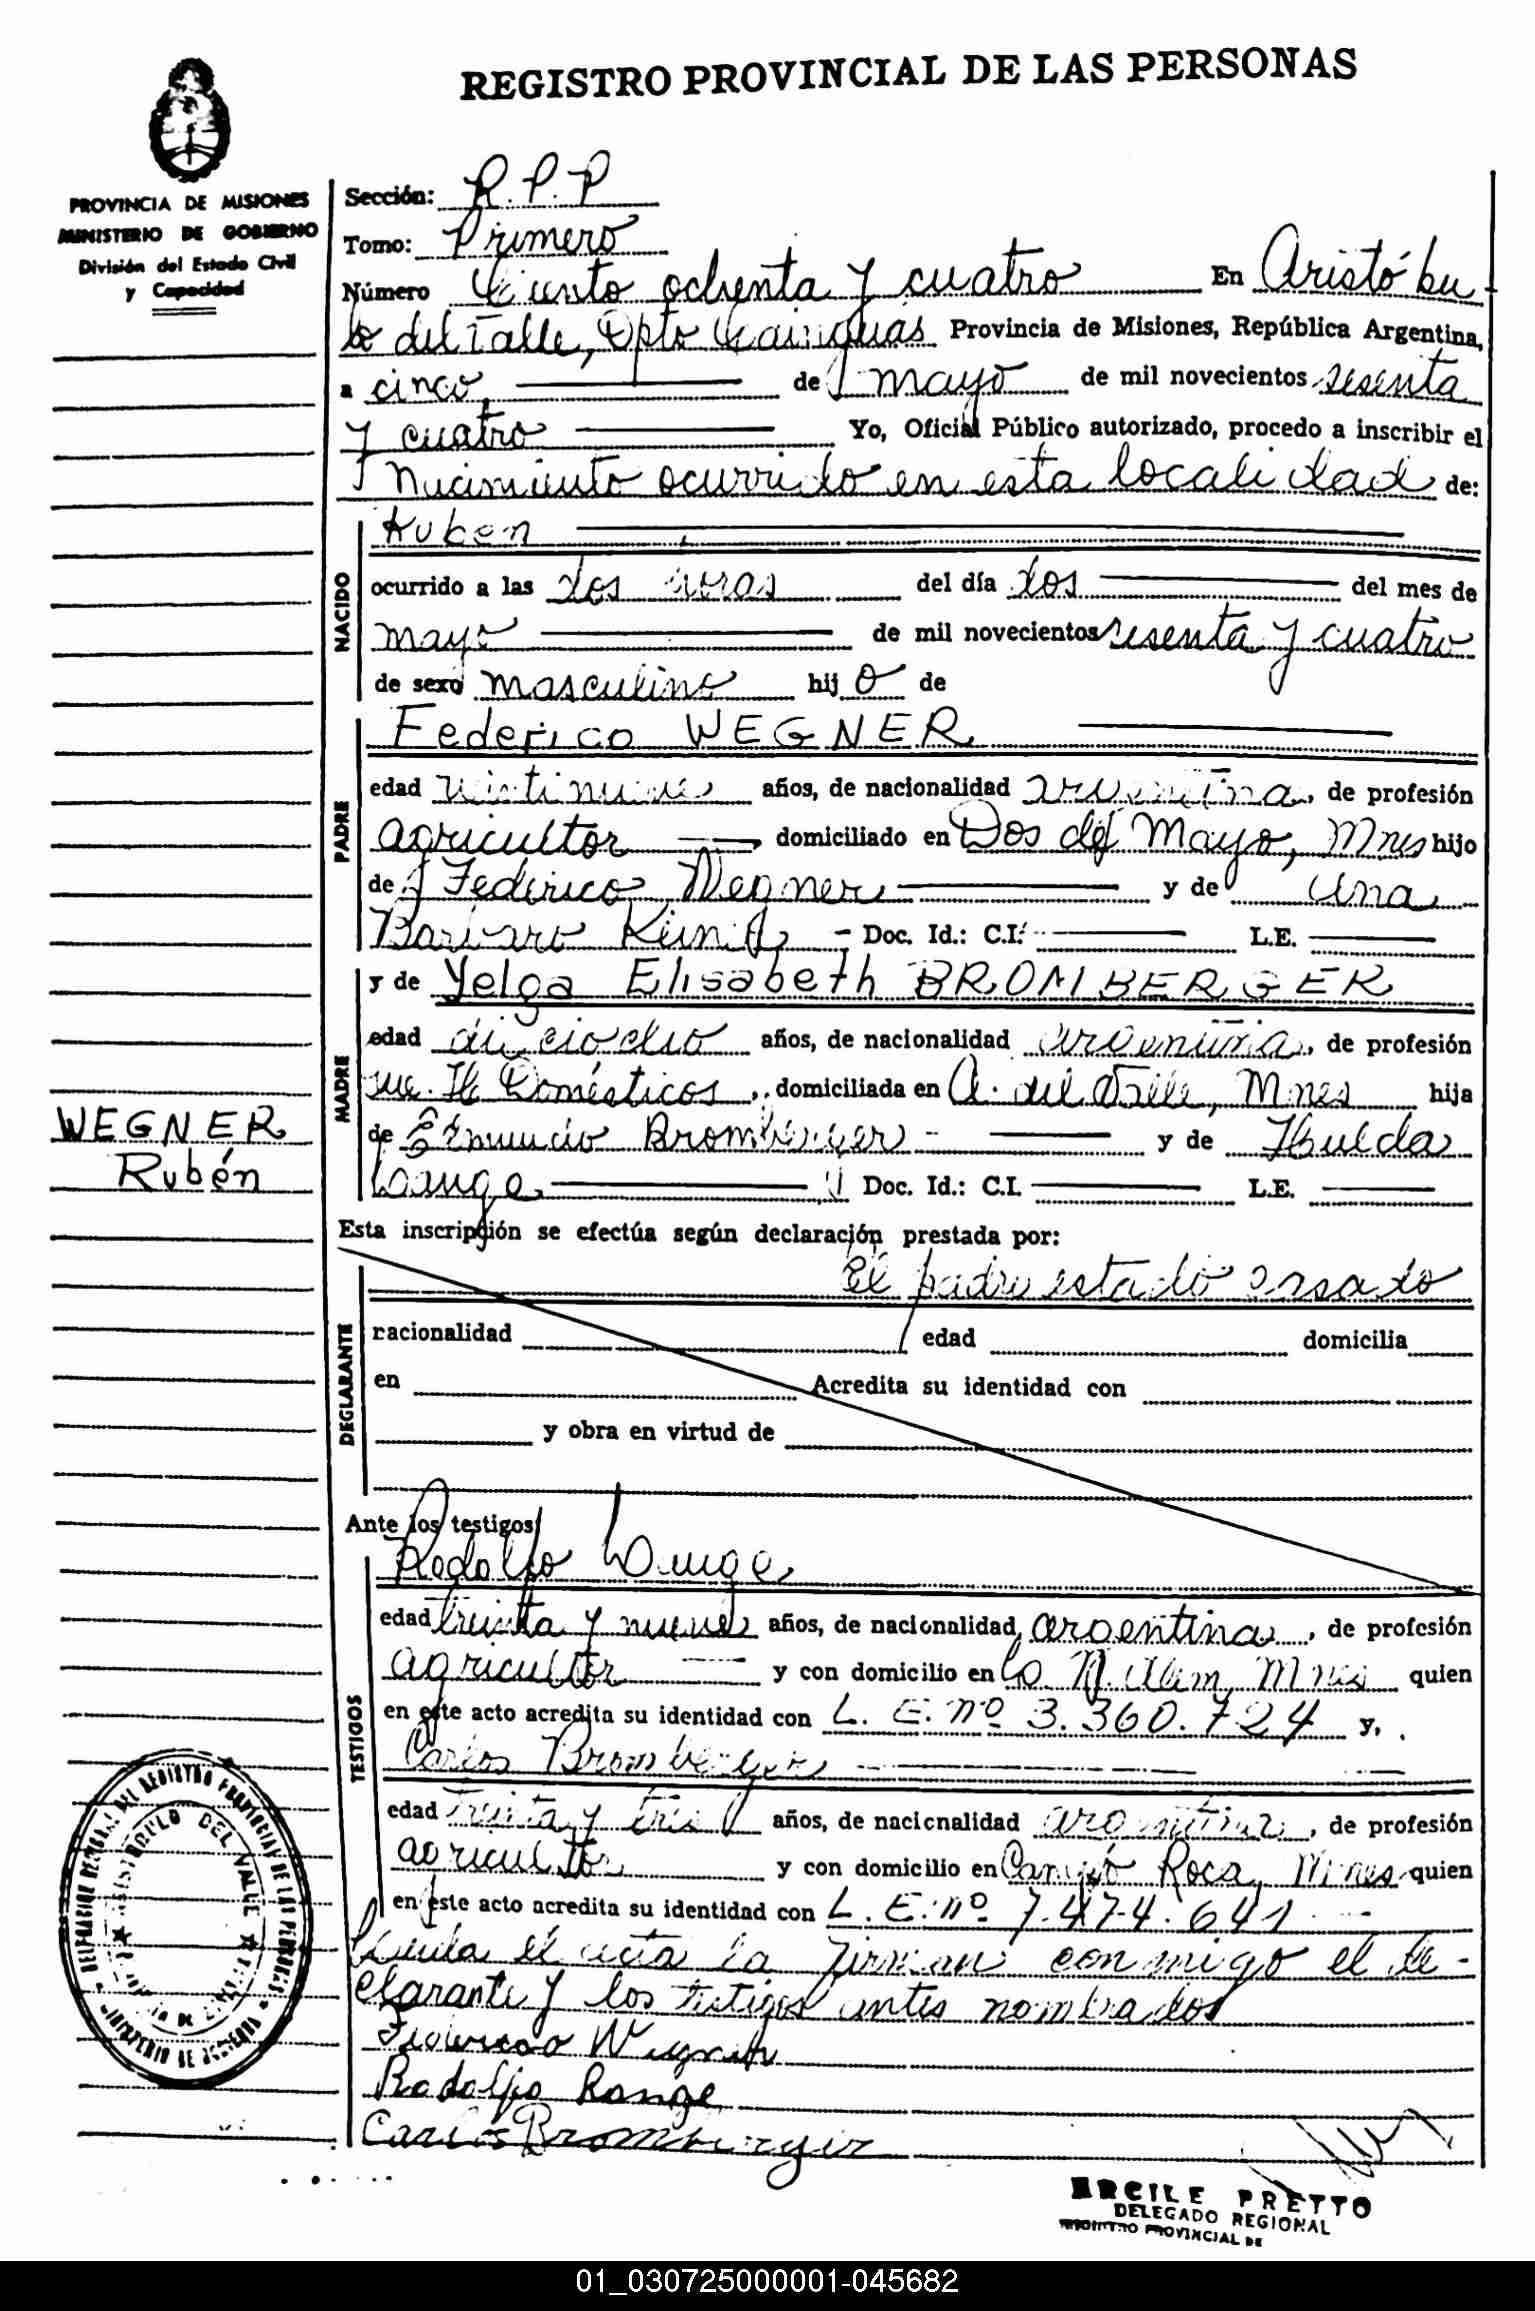 REGISTRO PROVINCIAL DE LAS PERSONAS
PROVINCIA DE MISIONES
MINISTERIO DE GOBIERNO
División del Estado Civil
y Capacidad
Sección: R.P.P
Tomo: Primero
Número Ciento ochenta y cuatro En Aristóbu
lo del Valle, Dpto Cainguas Provincia de Misiones, República Argentina,
a cinco de mayo de mil novecientos sesenta
y cuatro Yo, Oficial Público autorizado, procedo a inscribir el
Nacimiento ocurrido en esta localidad de:
NACIDO
Ruben
ocurrido a las dos horas del día dos del mes de
mayo de mil novecientos sesenta y cuatro
de sexo masculino hijo de
PADRE
Federico WEGNER
edad veintinueve años, de nacionalidad argentina, de profesión
agricultor domiciliado en Dos de Mayo, Mnes hijo
de Federico Wegner y de
Doc. Id.: C.I. L.E.
MADRE
y de Yelga Elisabeth BROMBERGER
edad dieciocho años, de nacionalidad argentina, de profesión
Domésticos, domiciliada en A. del Valle, Mnes hija
de Edmundo Bromberger y de Hulda
Lange Doc. Id.: C.I. L.E.
WEGNER
Rubén
Esta inscripción se efectúa según declaración prestada por:
El padre estado casado
DECLARANTE
nacionalidad edad domicilia
en Acredita su identidad con
y obra en virtud de
Ante los testigos
TESTIGOS
Rodolfo Lange
edad treinta y nueve años, de nacionalidad argentina, de profesión
agricultor y con domicilio en L. N. Alem, Mnes quien
en este acto acredita su identidad con L. E. nº 3.360.724 y,
Carlos Bromberger
edad treinta y tres años, de nacionalidad argentina, de profesión
agricultor y con domicilio en Campo Roca, Mnes quien
en este acto acredita su identidad con L. E. nº 7.474.641
Leída el acta la firman conmigo el de-
clarante y los testigos antes nombrados
Federico Wegner
Rodolfo Lange
Carlos Bromberger
ERCILE PRETTO
DELEGADO REGIONAL
REGISTRO PROVINCIAL DE
ARISTOBULO DEL VALLE
01_030725000001-045682